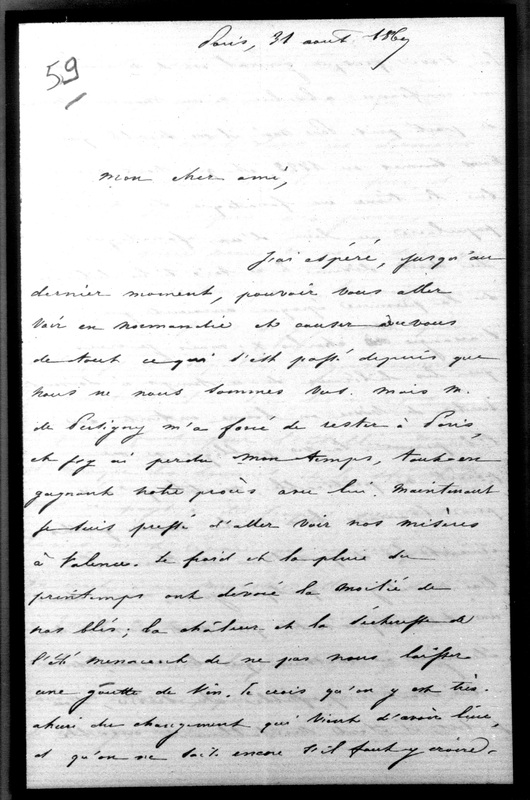 Paris, 31 août 186
59
mon cher ami,
J'ai espéré, jusqu'au
dernier moment, pouvoir vous aller
voir en Normandie et causer avec vous
de tout ce qui s'est passé depuis que
nous ne nous sommes vus. mais M.
de Persigny m'a forcé de rester à Paris,
et j'y ai perdu mon temps, tout en
gagnant notre procès avec lui. Maintenant
je suis pressé d'aller voir nos misères
à Valence. Le froid et la pluie du
printemps ont dévoré la moitié de
nos blés; la châleur et la sécheresse de
l'été menacent de ne pas nous laisser
une goutte de vin. Je crois qu'on y est très
ahuri du changement qui vient d'avoir lieu,
et qu'on ne sait encore s'il faut y croire.